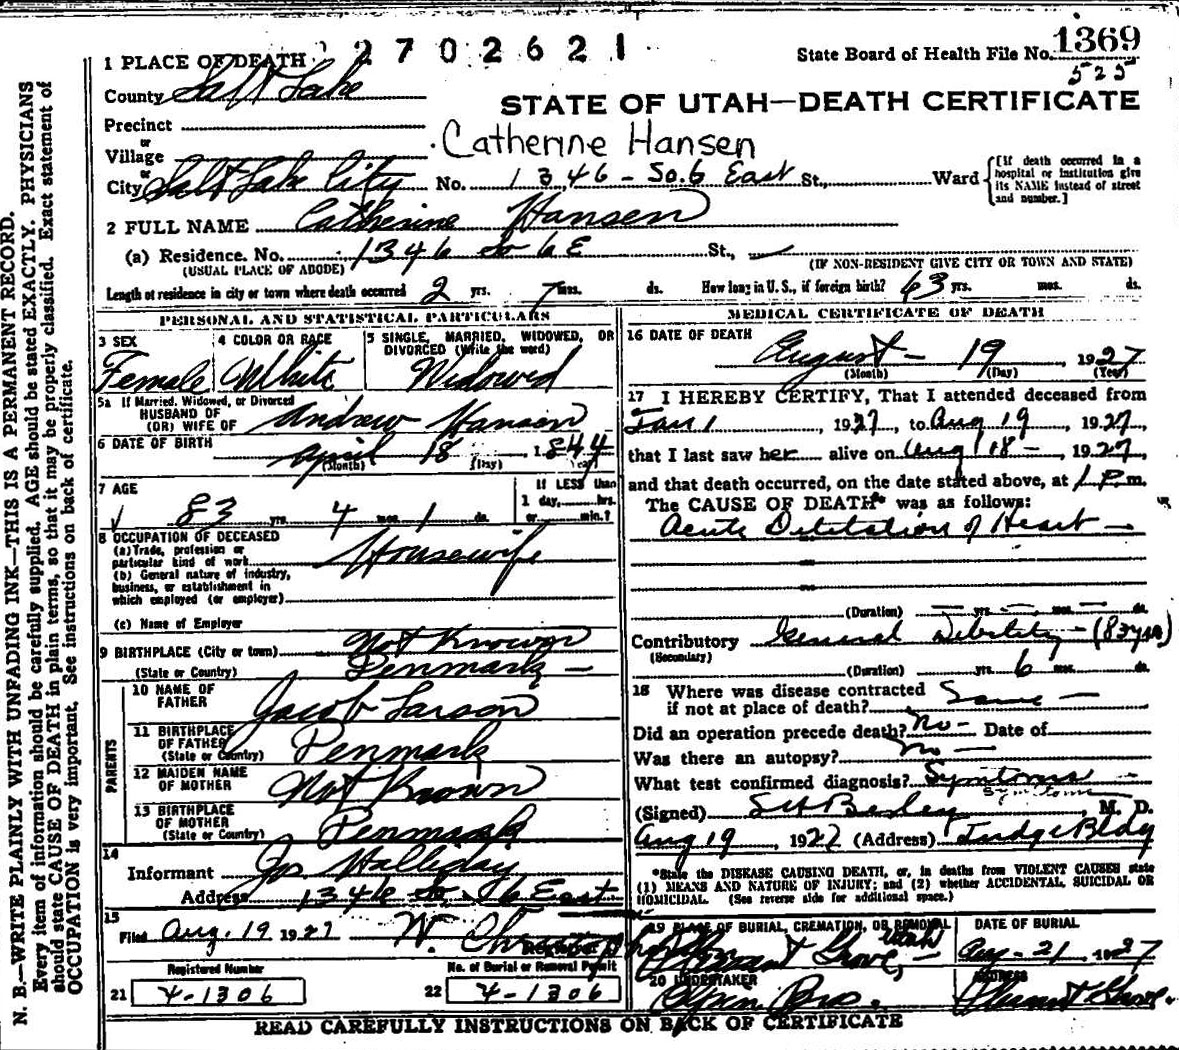 2702621
State Board of Health File No. 1369
525
1 PLACE OF DEATH
County Salt Lake
STATE OF UTAH—DEATH CERTIFICATE
Precinct
or
Village
Catherine Hansen
or
City Salt Lake City No. 1346 - So. 6 East St., Ward
[If death occurred in a hospital or institution give its NAME instead of street and number.]
2 FULL NAME Catherine Hansen
(a) Residence. No. 1346 So 6 E St.,
(USUAL PLACE OF ABODE) (IF NON-RESIDENT GIVE CITY OR TOWN AND STATE)
Length of residence in city or town where death occurred 2 yrs. 7 mos. ds. How long in U. S., if foreign birth? 63 yrs. mos. ds.
PERSONAL AND STATISTICAL PARTICULARS
3 SEX
Female
4 COLOR OR RACE
White
5 SINGLE, MARRIED, WIDOWED, OR DIVORCED (Write the word)
Widowed
5a If Married, Widowed, or Divorced
HUSBAND OF
(OR) WIFE OF Andrew Hansen
6 DATE OF BIRTH April 18, 1844
(Month) (Day) (Year)
7 AGE
83 yrs. 4 mos. 1 ds.
If LESS than
1 day, hrs.
or min.?
8 OCCUPATION OF DECEASED
(a) Trade, profession or
particular kind of work Housewife
(b) General nature of industry,
business, or establishment in
which employed (or employer)
(c) Name of Employer
9 BIRTHPLACE (City or town) Not Known
(State or Country) Denmark
PARENTS
10 NAME OF
FATHER Jacob Larson
11 BIRTHPLACE
OF FATHER
(State or Country) Denmark
12 MAIDEN NAME
OF MOTHER Not Known
13 BIRTHPLACE
OF MOTHER
(State or Country) Denmark
14
Informant Jos Halliday
Address 1346 So 6 East
15
Filed Aug. 19 1927 W.
Registrar
Registered Number
21 4-1306
No. of Burial or Removal Permit
22 4-1306
MEDICAL CERTIFICATE OF DEATH
16 DATE OF DEATH
August - 19 1927
(Month) (Day) (Year)
17 I HEREBY CERTIFY, That I attended deceased from
Jan 1, 1927, to Aug 19, 1927,
that I last saw her alive on Aug 18 - 1927
and that death occurred, on the date stated above, at 1 P.m.
The CAUSE OF DEATH* was as follows:
Acute Dilitation of Heart
(Duration) yrs. mos. ds.
Contributory General Debility - (83 yrs)
(Secondary)
(Duration) yrs. 6 mos. ds.
18 Where was disease contracted
if not at place of death? Same
Did an operation precede death? No Date of
Was there an autopsy? No
What test confirmed diagnosis? Symtoms
Symptoms
(Signed) Besley, M. D.
Aug 19, 1927 (Address) Judge Bldg
*State the DISEASE CAUSING DEATH, or, in deaths from VIOLENT CAUSES state
(1) MEANS AND NATURE OF INJURY; and (2) whether ACCIDENTAL, SUICIDAL OR
HOMICIDAL. (See reverse side for additional space.)
19 PLACE OF BURIAL, CREMATION, OR REMOVAL
Pleasant Grove, Utah
DATE OF BURIAL
Aug - 21 1927
20 UNDERTAKER
Bros.
ADDRESS
Pleasant Grove
READ CAREFULLY INSTRUCTIONS ON BACK OF CERTIFICATE
N. B.—WRITE PLAINLY WITH UNFADING INK—THIS IS A PERMANENT RECORD.
Every item of information should be carefully supplied. AGE should be stated EXACTLY. PHYSICIANS
should state CAUSE OF DEATH in plain terms, so that it may be properly classified. Exact statement of
OCCUPATION is very important. See instructions on back of certificate.